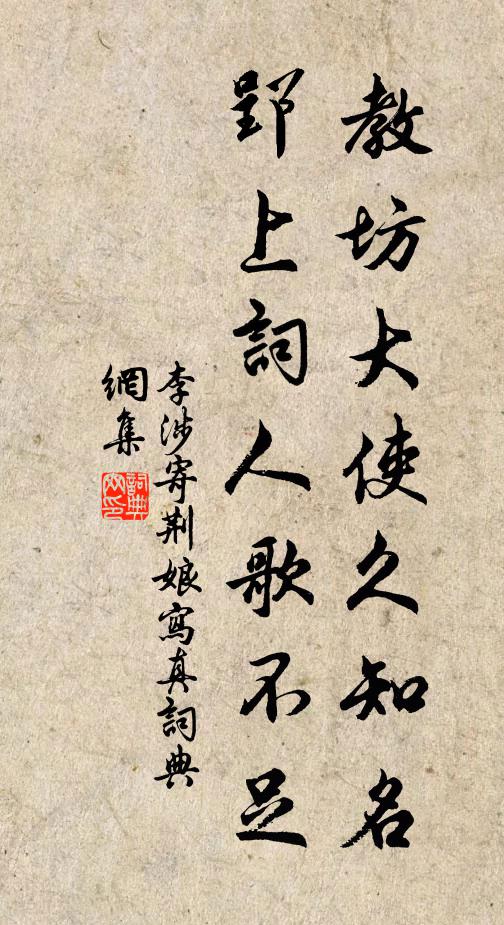 教坊大使久知名
郢上詞人歌不足
李涉寄荆娘寫真詞典
網集
詞典網印